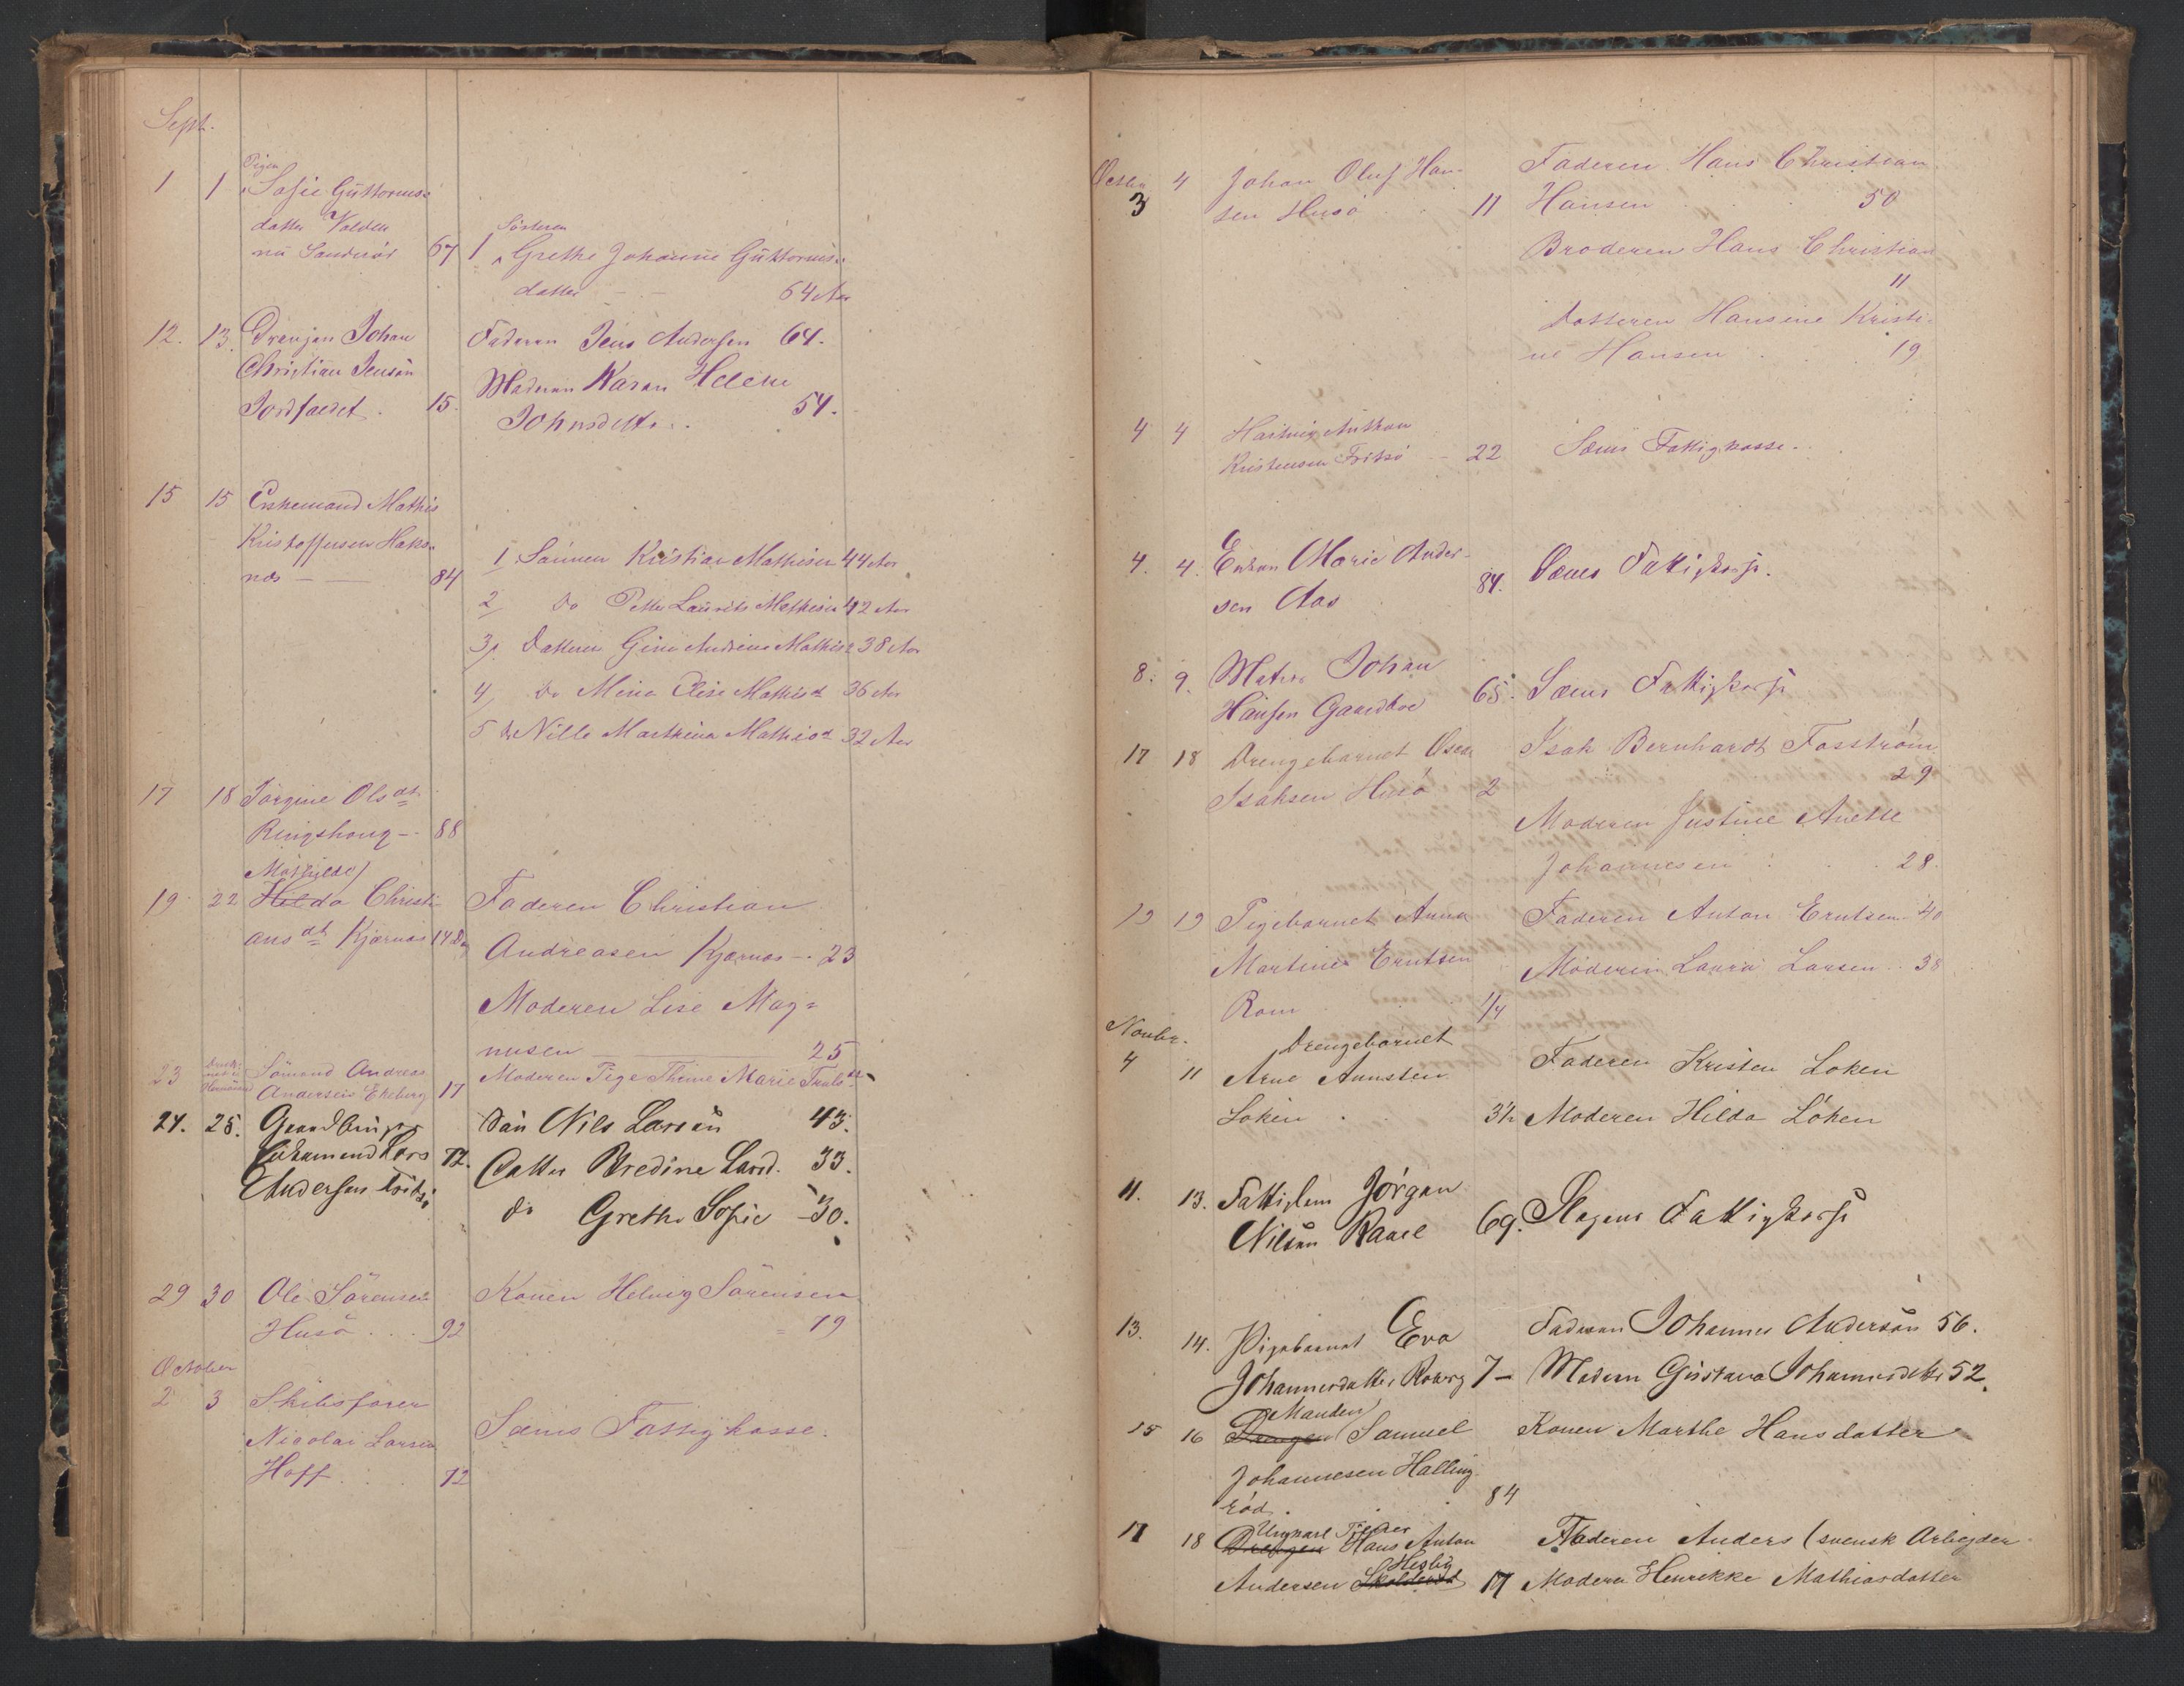 Sept.
Pigen
1 1 Sofie Guttorms-
datter Valden
nu Sandnös 67
Søsteren
1 Grethe Johanne Guttorms-
datter - - 64 Aar
12. 13. Drengen Johan
Christian Jensen
Jordfaldet. 15.
Faderen Jens Andersen 64.
Moderen Karen Helene
Johnsdatter.. 54.
15 15 Enkemand Mathis
Kristoffersen Haks-
næs - - 84
1 Sønnen Kristian Mathisen 44 Aar
2 do Petter Laurits Mathisen 42 Aar
3 Datteren Gine Andrine Mathisd 38 Aar
4 do Mina Elise Mathisd 36 Aar
5 do Nille Marthina Mathisd 32 Aar
17 18 Jörgine Olsdt
Ringshoug - 88
Mathilde
19 22 Hilda Christi-
ansdt Kjærnæs 14 Dg
Faderen Christian
Andreasen Kjærnæs - 23
Moderen Lise Mag=
nusen 25
23 Sömand Andreas
Andersen Ekeberg 17
Moderen Pige Thrine Marie Trulsdt
24. 25. Gaardbruger
Enkemand Lars 72.
Andersen Fritsö
Søn Nils Larsen 43.
Datter Bredine Larsd. 33.
do Grethe Sofie - 30.
29 30 Ole Sörensen
Husö . . . 92
Konen Helvig Sörensen
= 79
October
2 3 Skibsfører
Nicolai Larsen
Hoff . . . 72
Sæms Fattigkasse.
Octbr
3 4 Johan Oluf Han-
sen Husö . . 11
Faderen Hans Christian
Hansen . . . 50
Broderen Hans Christian
11
Datteren Hansine Kristi-
ne Hansen . . 19
4 4 Hartvig Anthon
Kristensen Fritsö - 22
Sæms Fattigkasse.
4. 4. Enken Marie Ander-
sen Aas 84.
Sæms Fattigkasse.
8. 9. Matros Johan
Hansen Gaasekoe 65.
Sæms Fattigkasse
17 18 Drengebarnet Oscar
Isaksen Husö 2
Isak Bernhardt Fosström
29
Moderen Justine Anette
Johannesen . . 28.
19 19 Pigebarnet Anna
Martine Erntsen
Rom 1/4
Faderen Anton Erntsen 40
Moderen Laura Larsen .. 38
Novbr.
Drengebarnet
4 11 Arne Aunsten
Loken . 3½
Faderen Kristen Loken
Moderen Hilda Löken
11. 13. Fattiglem Jörgen
Nilsen Raael 69.
Slagens Fattigkasse
13. 14. Pigebarnet Eva
Johannesdatter Roberg 7 -
Faderen Johannes Andersen 56.
Modern Gustava Johannesdatter 52.
Manden
15 16 Drengen Samuel
Johannesen Halling-
röd . 84
Konen Marthe Hansdatter
Ungkarl Tjener
17 18 Drengen Hans Anton
Hesby
Andersen Skolderød 17
Faderen Anders (svensk Arbejder
Modern Henrikke Mathiasdatter